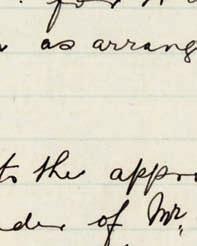 for
as arrang
to the appro
nder of Mr